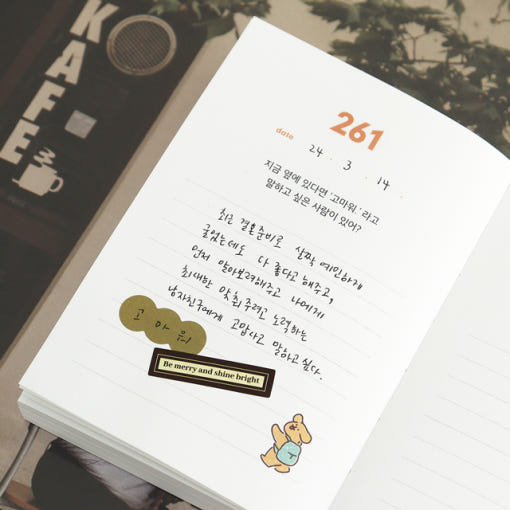 KAFE
261
date 24 . 3 . 14 .
지금 옆에 있다면 '고마워' 라고
말하고 싶은 사람이 있어?
최근 결혼준비로 살짝 예민하게
굴었는데도 다 좋다고 해주고,
먼저 알아보려해주고 나에게
최대한 맞춰주려고 노력하는
남자친구에게 고맙다고 말하고 싶다.
고 마 워
Be merry and shine bright